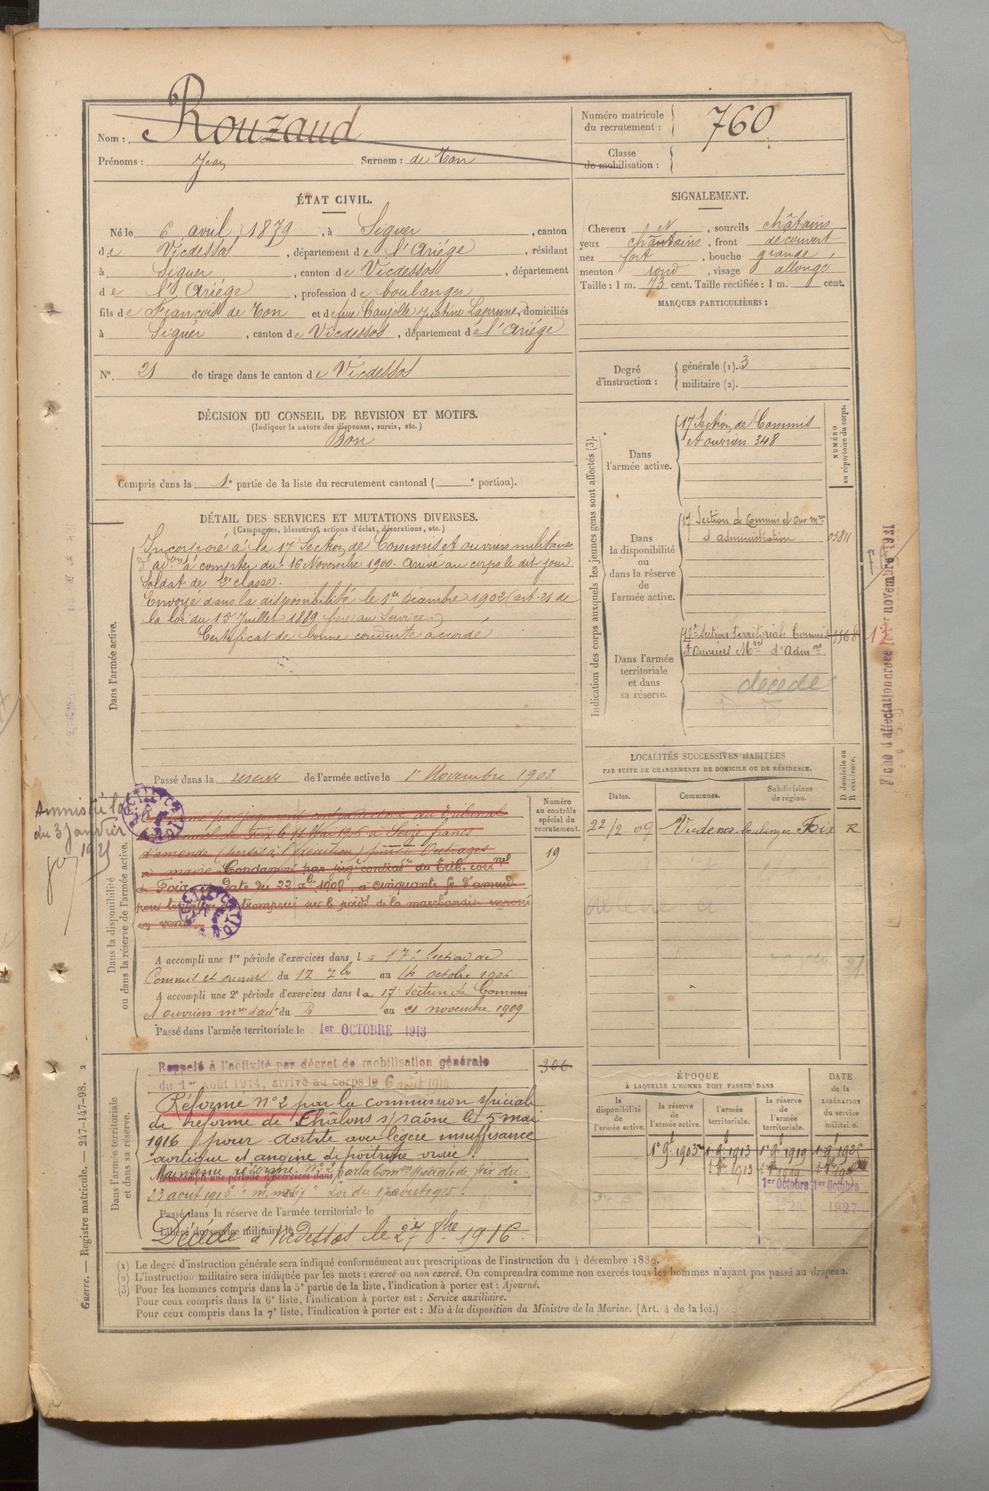 Nom : Rouzaud
Prénoms : Jean Surnom : de Ton
Numéro matricule du recrutement : 760
Classe de mobilisation :
ÉTAT CIVIL.
Né le 6 avril 1879, à Siguer, canton
de Vicdessos, département de l'Ariége, résidant
à Siguer, canton de Vicdessos, département
de l'Ariége, profession de boulanger
fils de François de Ton et de feue Caujolle Justine, domiciliés
à Siguer, canton de Vicdessos, département de l'Ariége
N° 21 de tirage dans le canton de Vicdessos
DÉCISION DU CONSEIL DE REVISION ET MOTIFS.
(Indiquer la nature des dispenses, sursis, etc.)
Bon
Compris dans la 1e partie de la liste du recrutement cantonal ( e portion).
SIGNALEMENT.
Cheveux N, sourcils châtains
yeux châtains, front découvert
nez fort, bouche grande
menton rond, visage allongé
Taille : 1 m. 73 cent. Taille rectifiée : 1 m. cent.
MARQUES PARTICULIÈRES :
Degré d'instruction : générale (1). 3
militaire (2).
DÉTAIL DES SERVICES ET MUTATIONS DIVERSES.
(Campagnes, blessures, actions d'éclat, décorations, etc.)
Dans l'armée active.
Incorporé à la 17 Section de Commis et ouvriers militaires
d'adon à compter du 16 Novembre 1900. arrivé au corps le dit jour
Soldat de 2e classe.
Envoyé dans la disponibilité le 1er décembre 1902 (art. 21 de
la loi du 15 Juillet 1889 frère au Service)
Certificat de bonne conduite accordé
Passé dans la réserve de l'armée active le 1er Novembre 1903
Indication des corps auxquels les jeunes gens sont affectés (3).
NUMÉRO au répertoire du corps.
Dans l'armée active.
17 Section de Commis
et ouvriers 348
Dans la disponibilité ou dans la réserve de l'armée active.
17 Section de Commis et Ouv mres
d'administration
Dans l'armée territoriale et dans sa réserve.
17e Section Territoriale Commis
& Ouvriers Mres d'Admon
décédé
17
LOCALITÉS SUCCESSIVES HABITÉES
PAR SUITE DE CHANGEMENTS DE DOMICILE OU DE RÉSIDENCE.
Dates. Communes. Subdivisions de région. D domicile ou R résidence.
22/2 09 Vicdessos Foix R
Amnistié loi
du 3 Janvier
1925
Dans la disponibilité ou dans la réserve de l'armée active.
Numéro au contrôle spécial du recrutement.
19
d'amende
Condamné par jugt contrat du Trib. corrnel
de Foix
A accompli une 1re période d'exercices dans la 17e Section de
Commis et ouvriers du 17 7bre au 14 octobre 1906
A accompli une 2e période d'exercices dans la 17e Section de Commis
et ouvriers mres d'adon du 5 au 21 novembre 1909
Passé dans l'armée territoriale le 1er OCTOBRE 1913
Dans l'armée territoriale et dans sa réserve.
306
Rappelé à l'activité par décret de mobilisation générale
du 1er août 1914, arrivé au corps le 6 août 1914
Réformé N°2 par la commission spéciale
de réforme de Châlons s/ saône le 5 mai
1916 pour aortite avec légère insuffisance
aortique et angine de poitrine vraie.
Maintenu réformé n° 2 par la Comon spéciale de Foix du
23 août 1916
Passé dans la réserve de l'armée territoriale le
Libéré du service militaire le
Décédé à Vicdessos le 27 8bre 1916
ÉPOQUE
À LAQUELLE L'HOMME DOIT PASSER DANS
la disponibilité de l'armée active. la réserve de l'armée active. l'armée territoriale. la réserve de l'armée territoriale. DATE de la LIBÉRATION du service militaire.
1er 9bre 1903 1er 9bre 1913 1er 9bre 1919
1er Octobre 1er Octobre
1927
(1) Le degré d'instruction générale sera indiqué conformément aux prescriptions de l'instruction du 4 décembre 1889.
(2) L'instruction militaire sera indiquée par les mots : exercé ou non exercé. On comprendra comme non exercés tous les hommes n'ayant pas passé au drapeau.
(3) Pour les hommes compris dans la 5e partie de la liste, l'indication à porter est : Ajourné.
Pour ceux compris dans la 6e liste, l'indication à porter est : Service auxiliaire.
Pour ceux compris dans la 7e liste, l'indication à porter est : Mis à la disposition du Ministre de la Marine. (Art. 4 de la loi.)
Guerre. — Registre matricule. — 247-147-98. 2